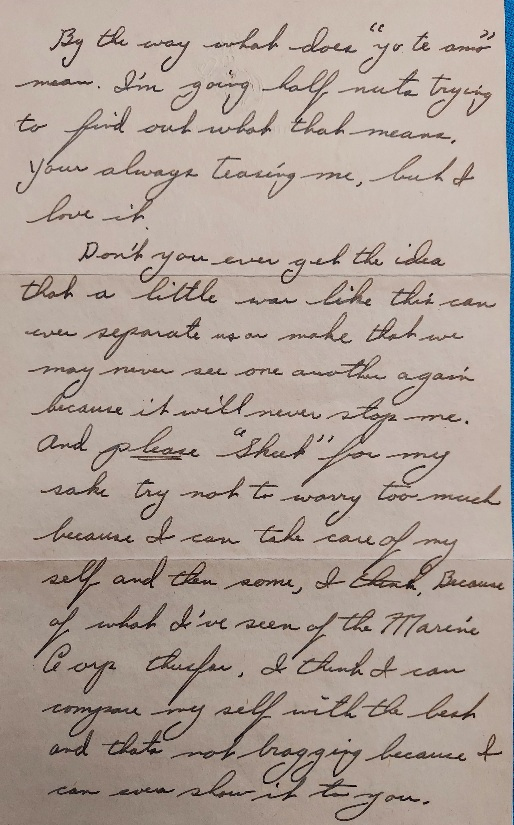 By the way what does "yo te amo"
mean. I'm going half nuts trying
to find out what that means.
Your always teasing me, but I
love it.
Don't you ever get the idea
that a little war like this can
ever separate us or make that we
may never see one another again
because it will never stop me.
And please "Sheek" for my
sake try not to worry too much
because I can take care of my
self and then some, I think, Because
of what I've seen of the Marine
Corp thusfar, I think I can
compare my self with the best
and thats not bragging because I
can even show it to you.